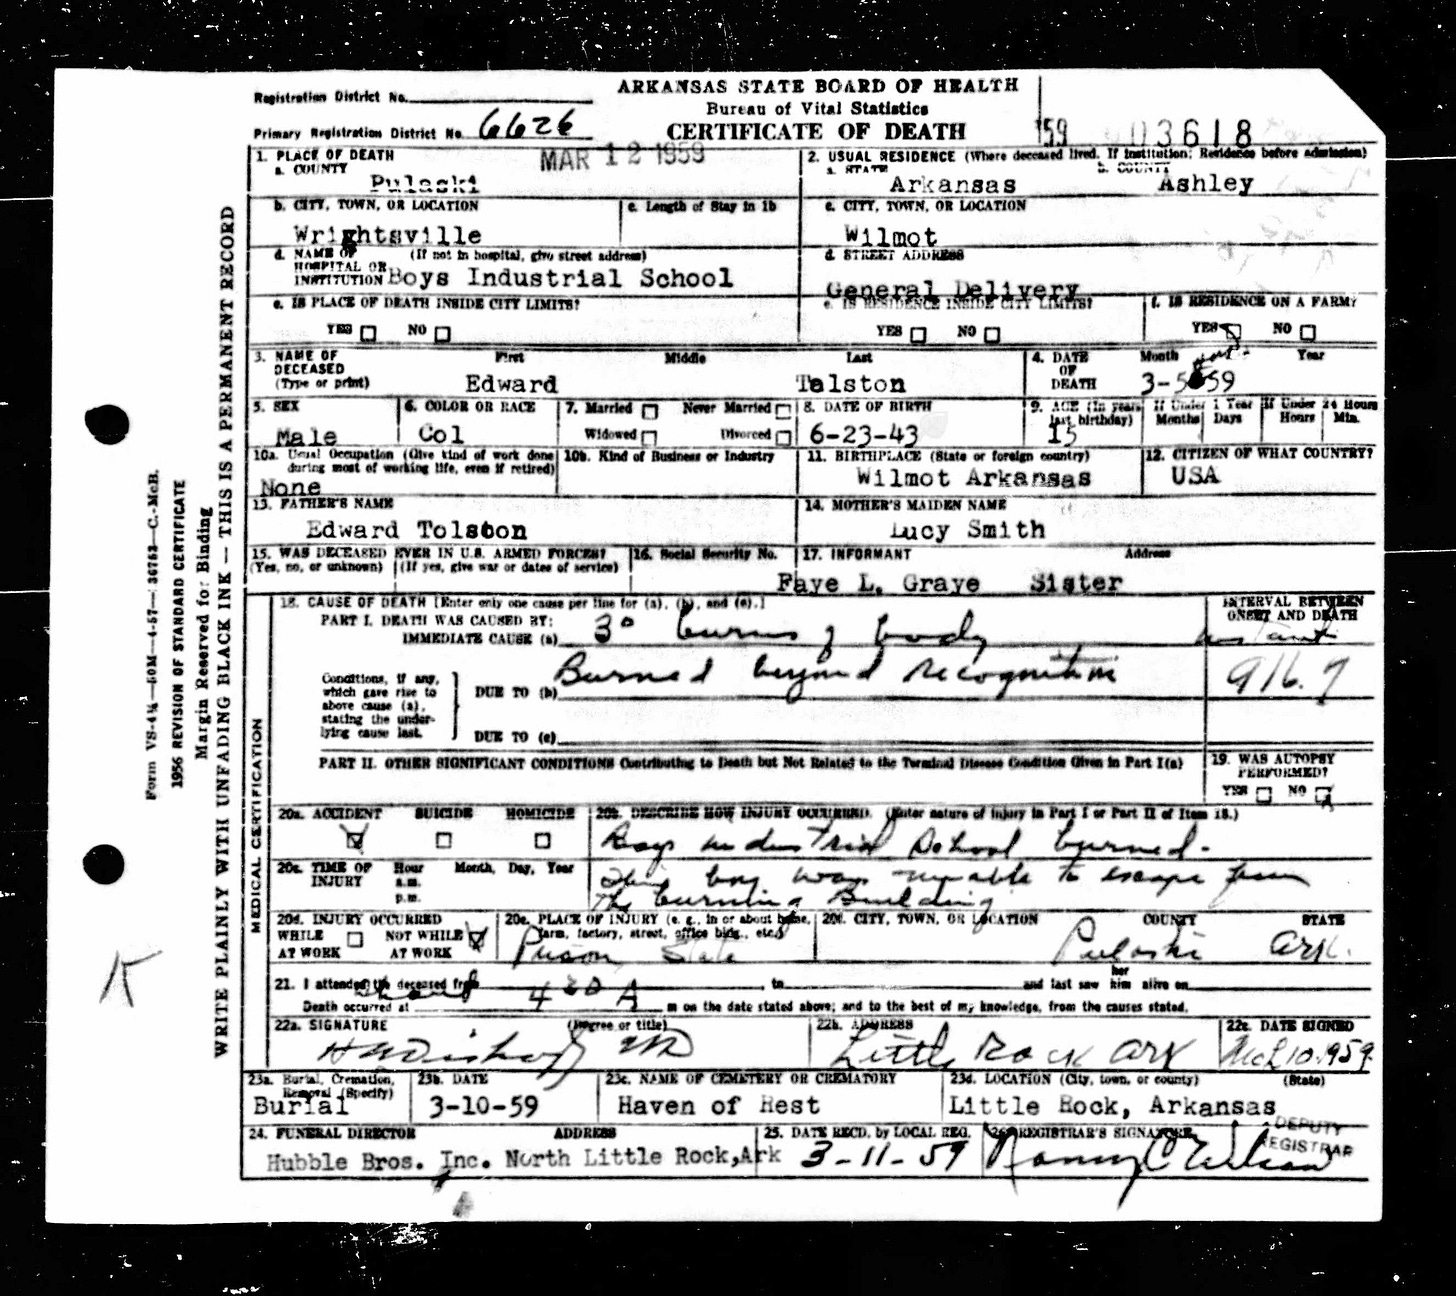 Registration District No.
ARKANSAS STATE BOARD OF HEALTH
Bureau of Vital Statistics
Primary Registration District No. 6626
CERTIFICATE OF DEATH
159 03618
MAR 12 1959
1. PLACE OF DEATH
a. COUNTY
Pulaski
2. USUAL RESIDENCE (Where deceased lived. If institution: Residence before admission)
a. STATE b. COUNTY
Arkansas Ashley
b. CITY, TOWN, OR LOCATION
c. Length of Stay in 1b
Wrightsville
c. CITY, TOWN, OR LOCATION
Wilmot
d. NAME OF HOSPITAL OR INSTITUTION (If not in hospital, give street address)
Boys Industrial School
d. STREET ADDRESS
General Delivery
e. IS PLACE OF DEATH INSIDE CITY LIMITS?
YES NO
e. IS RESIDENCE INSIDE CITY LIMITS?
YES NO
f. IS RESIDENCE ON A FARM?
YES NO
3. NAME OF DECEASED (Type or print)
First Middle Last
Edward Talston
4. DATE OF DEATH
Month Year
3-5 59
5. SEX
Male
6. COLOR OR RACE
Col
7. Married Never Married
Widowed Divorced
8. DATE OF BIRTH
6-23-43
9. AGE (In years last birthday)
15
If Under 1 Year
Months Days
If Under 24 Hours
Hours Min.
10a. Usual Occupation (Give kind of work done during most of working life, even if retired)
None
10b. Kind of Business or Industry
11. BIRTHPLACE (State or foreign country)
Wilmot Arkansas
12. CITIZEN OF WHAT COUNTRY?
USA
13. FATHER'S NAME
Edward Tolston
14. MOTHER'S MAIDEN NAME
Lucy Smith
15. WAS DECEASED EVER IN U.S. ARMED FORCES?
(Yes, no, or unknown) (If yes, give war or dates of service)
16. Social Security No.
17. INFORMANT Address
Faye L. Graye Sister
18. CAUSE OF DEATH [Enter only one cause per line for (a), (b), and (c).]
INTERVAL BETWEEN ONSET AND DEATH
PART I. DEATH WAS CAUSED BY:
IMMEDIATE CAUSE (a) 3° burns of body
instant
Conditions, if any, which gave rise to above cause (a), stating the underlying cause last.
DUE TO (b) Burned beyond recognition
916.7
DUE TO (c)
PART II. OTHER SIGNIFICANT CONDITIONS Contributing to Death but Not Related to the Terminal Disease Condition Given in Part I(a)
19. WAS AUTOPSY PERFORMED?
YES NO
20a. ACCIDENT SUICIDE HOMICIDE
20b. DESCRIBE HOW INJURY OCCURRED. (Enter nature of injury in Part I or Part II of Item 18.)
Boys industrial School burned.
This boy was unable to escape from
the burning Building
20c. TIME OF INJURY
Hour Month, Day, Year
a.m.
p.m.
20d. INJURY OCCURRED
WHILE AT WORK NOT WHILE AT WORK
20e. PLACE OF INJURY (e. g., in or about home, farm, factory, street, office bldg., etc.)
Prison State
20f. CITY, TOWN, OR LOCATION COUNTY STATE
Pulaski Ark.
21. I attended the deceased from to and last saw her him alive on
Death occurred at about 4 30 A m on the date stated above; and to the best of my knowledge, from the causes stated.
22a. SIGNATURE (Degree or title)
22b. ADDRESS
Little Rock Ark
22c. DATE SIGNED
Mch 10-1959
23a. Burial, Cremation, Removal (Specify)
Burial
23b. DATE
3-10-59
23c. NAME OF CEMETERY OR CREMATORY
Haven of Rest
23d. LOCATION (City, town, or county) (State)
Little Rock, Arkansas
24. FUNERAL DIRECTOR ADDRESS
Hubble Bros. Inc. North Little Rock, Ark
25. DATE RECD. by LOCAL REG.
3-11-59
26. REGISTRAR'S SIGNATURE
DEPUTY REGISTRAR
MEDICAL CERTIFICATION
WRITE PLAINLY WITH UNFADING BLACK INK — THIS IS A PERMANENT RECORD
Margin Reserved for Binding
1956 REVISION OF STANDARD CERTIFICATE
Form VS-4¼—50M—4-57—36763—C.-McB.